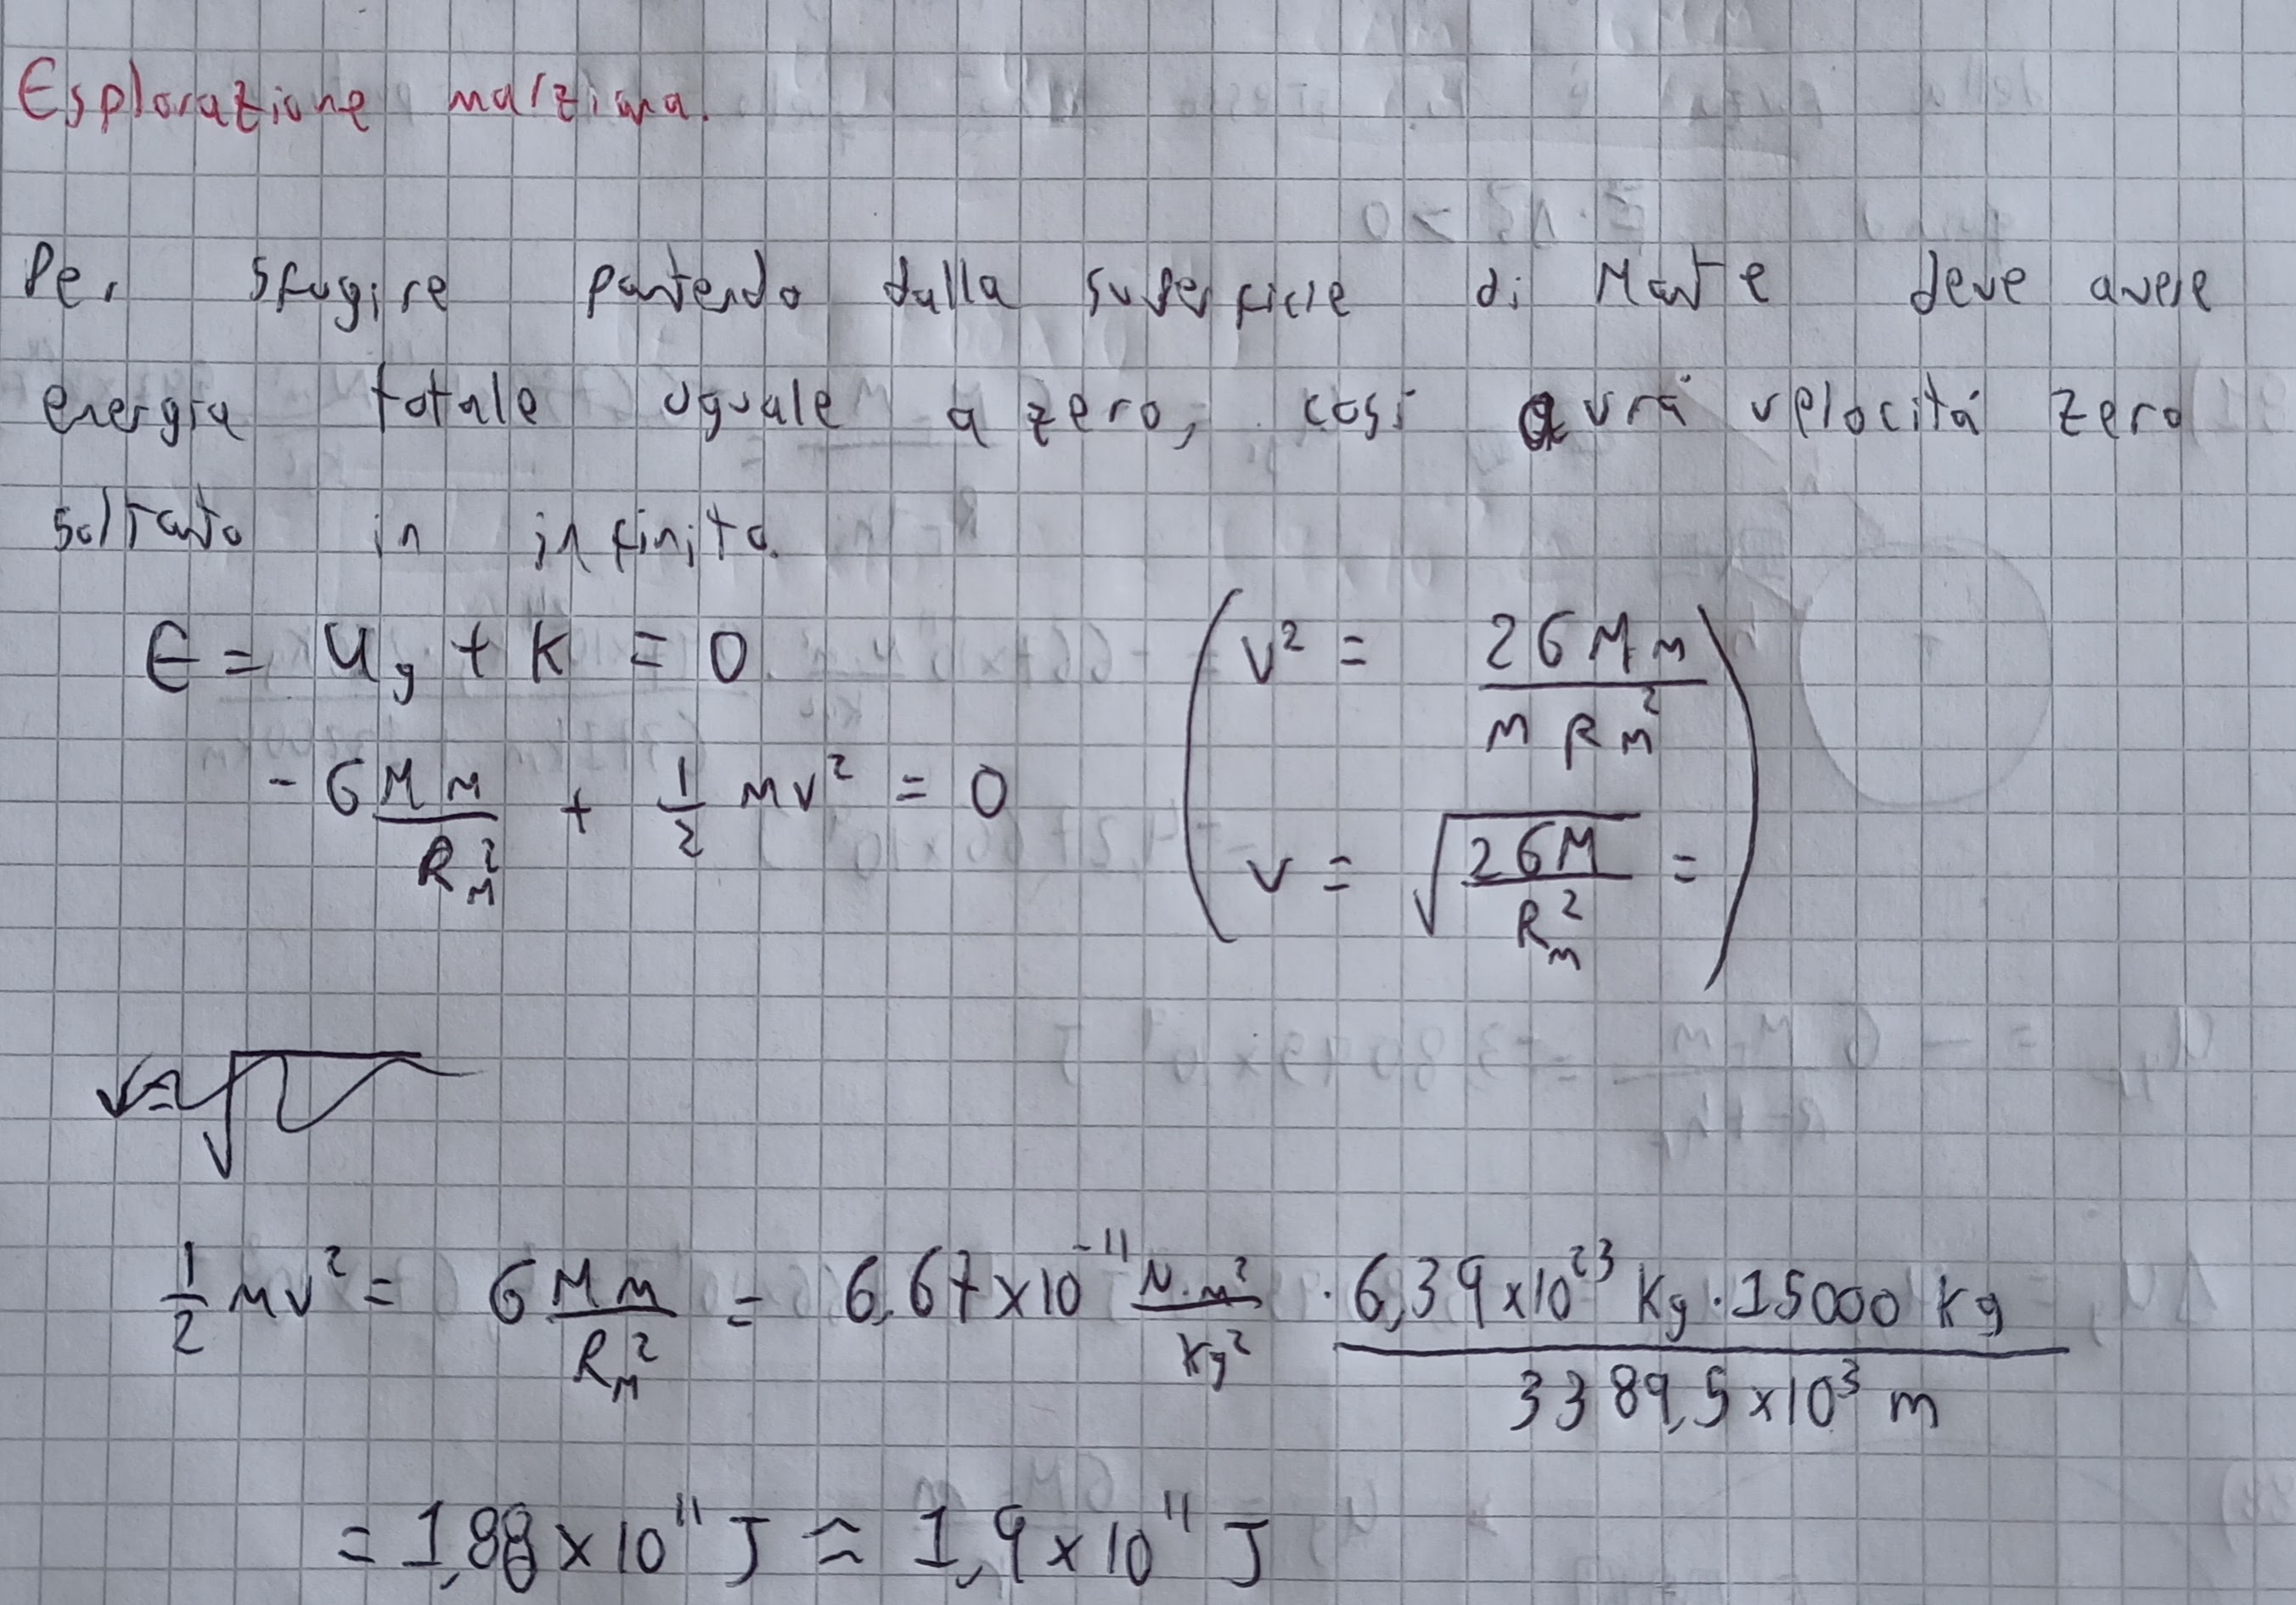 Esplorazione marziana.
Per sfugire partendo dalla superficie di Marte deve avere
energia totale uguale a zero, così avrà velocitá zero
soltanto in infinito.
E = Ug + K = 0
- G Mm/R_M^2 + 1/2 mv² = 0
( v² = 2GMm / m R_m^2
v = √(2GM / R_m^2) = )
1/2 mv² = G Mm/R_M^2 = 6,67 x 10^-11 N·m²/kg² · 6,39 x 10^23 Kg · 15000 kg / 3389,5 x 10³ m
= 1,88 x 10^11 J ≈ 1,9 x 10^11 J